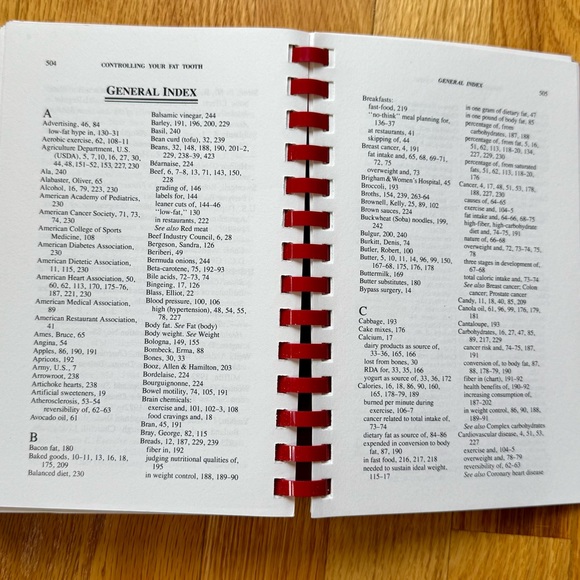 504
CONTROLLING YOUR FAT TOOTH
GENERAL INDEX
A
Advertising, 46, 84
low-fat hype in, 130–31
Aerobic exercise, 62, 108–11
Agriculture Department, U.S.
(USDA), 5, 7, 10, 16, 27, 30,
44, 48, 151–52, 153, 227, 230
Ala, 240
Alabaster, Oliver, 65
Alcohol, 16, 79, 223, 230
American Academy of Pediatrics,
230
American Cancer Society, 71, 73,
74, 230
American College of Sports
Medicine, 108
American Diabetes Association,
230
American Dietetic Association,
11, 115, 230
American Heart Association, 50,
60, 62, 113, 170, 175–76,
187, 221, 230
American Medical Association,
89
American Restaurant Association,
41
Ames, Bruce, 65
Angina, 54
Apples, 86, 190, 191
Apricots, 192
Army, U.S., 7
Arrowroot, 238
Artichoke hearts, 238
Artificial sweeteners, 19
Atherosclerosis, 53–54
reversibility of, 62–63
Avocado oil, 61
B
Bacon fat, 180
Baked goods, 10–11, 13, 16, 18,
175, 209
Balanced diet, 230
Balsamic vinegar, 244
Barley, 191, 196, 200, 229
Basil, 240
Bean curd (tofu), 32, 239
Beans, 32, 148, 188, 190, 201–2,
229, 238–39, 423
Béarnaise, 224
Beef, 6, 7–8, 13, 71, 143, 150,
228
grading of, 146
labels for, 144
leaner cuts of, 144–46
"low-fat," 130
in restaurants, 222
See also Red meat
Beef Industry Council, 6, 28
Bergeson, Sandra, 126
Beriberi, 49
Bermuda onions, 244
Beta-carotene, 75, 192–93
Bile acids, 72–73, 74
Bingeing, 17, 126
Blass, Elliot, 22
Blood pressure, 100, 106
high (hypertension), 48, 54, 55,
78, 227
Body fat. See Fat (body)
Body weight. See Weight
Bologna, 149, 155
Bombeck, Erma, 88
Bones, 30, 33
Booz, Allen & Hamilton, 203
Bordelaise, 224
Bourguignonne, 224
Bowel motility, 74, 105, 191
Brain chemicals:
exercise and, 101, 102–3, 108
food cravings and, 18
Bran, 45, 191
Bray, George, 82, 115
Breads, 12, 187, 229, 239
fiber in, 192
judging nutritional qualities of,
195
in weight control, 188, 189–90
GENERAL INDEX
505
Breakfasts:
fast-food, 219
"no-think" meal planning for,
136–37
at restaurants, 41
skipping of, 44
Breast cancer, 4, 191
fat intake and, 65, 68, 69–71,
72, 75
overweight and, 73
Brigham & Women's Hospital, 45
Broccoli, 193
Broths, 154, 239, 263–64
Brownell, Kelly, 25, 89, 102
Brown sauces, 224
Buckwheat (Soba) noodles, 199,
242
Bulgur, 200, 240
Burkitt, Denis, 74
Butler, Robert, 100
Butter, 5, 10, 11, 14, 96, 99, 150,
167–68, 175, 176, 178
Buttermilk, 169
Butter substitutes, 180
Bypass surgery, 14
C
Cabbage, 193
Cake mixes, 176
Calcium, 17
dairy products as source of,
33–36, 165, 166
lost from bones, 30
RDA for, 33, 35, 166
yogurt as source of, 33, 36, 172
Calories, 16, 18, 86, 90, 160,
165, 178–79, 189
burned per minute during
exercise, 106–7
cancer related to total intake of,
73–74
dietary fat as source of, 84–86
expended in conversion to body
fat, 87, 190
in fast food, 216, 217, 218
needed to sustain ideal weight,
115–17
in one gram of dietary fat, 47
in one pound of body fat, 85
percentage of, from
carbohydrates, 187, 188
percentage of, from fat, 5, 16,
51, 62, 113, 118–20, 134,
227, 229, 230
percentage of, from saturated
fats, 51, 62, 113, 118–20,
176
Cancer, 4, 17, 48, 51, 53, 178,
188, 227, 230
causes of, 64–65
exercise and, 104–5
fat intake and, 64–66, 68–75
high-fiber, high-carbohydrate
diet and, 74–75, 191
nature of, 66–68
overweight and, 72, 73–74, 75,
78
three stages in development of,
67–68
total calorie intake and, 73–74
See also Breast cancer; Colon
cancer; Prostate cancer
Candy, 11, 18, 40, 85, 209
Canola oil, 61, 96, 99, 176, 179,
181
Cantaloupe, 193
Carbohydrates, 16, 27, 47, 85,
89, 217, 229
cancer risk and, 74–75, 187,
191
conversion of, to body fat, 87,
88, 178–79, 190
fiber in (chart), 191–92
health benefits of, 190–92
increasing consumption of,
187–202
in weight control, 86, 90, 188,
189–91
See also Complex carbohydrates
Cardiovascular disease, 4, 51, 53,
227
exercise and, 104–5
overweight and, 78–79
reversibility of, 62–63
See also Coronary heart disease